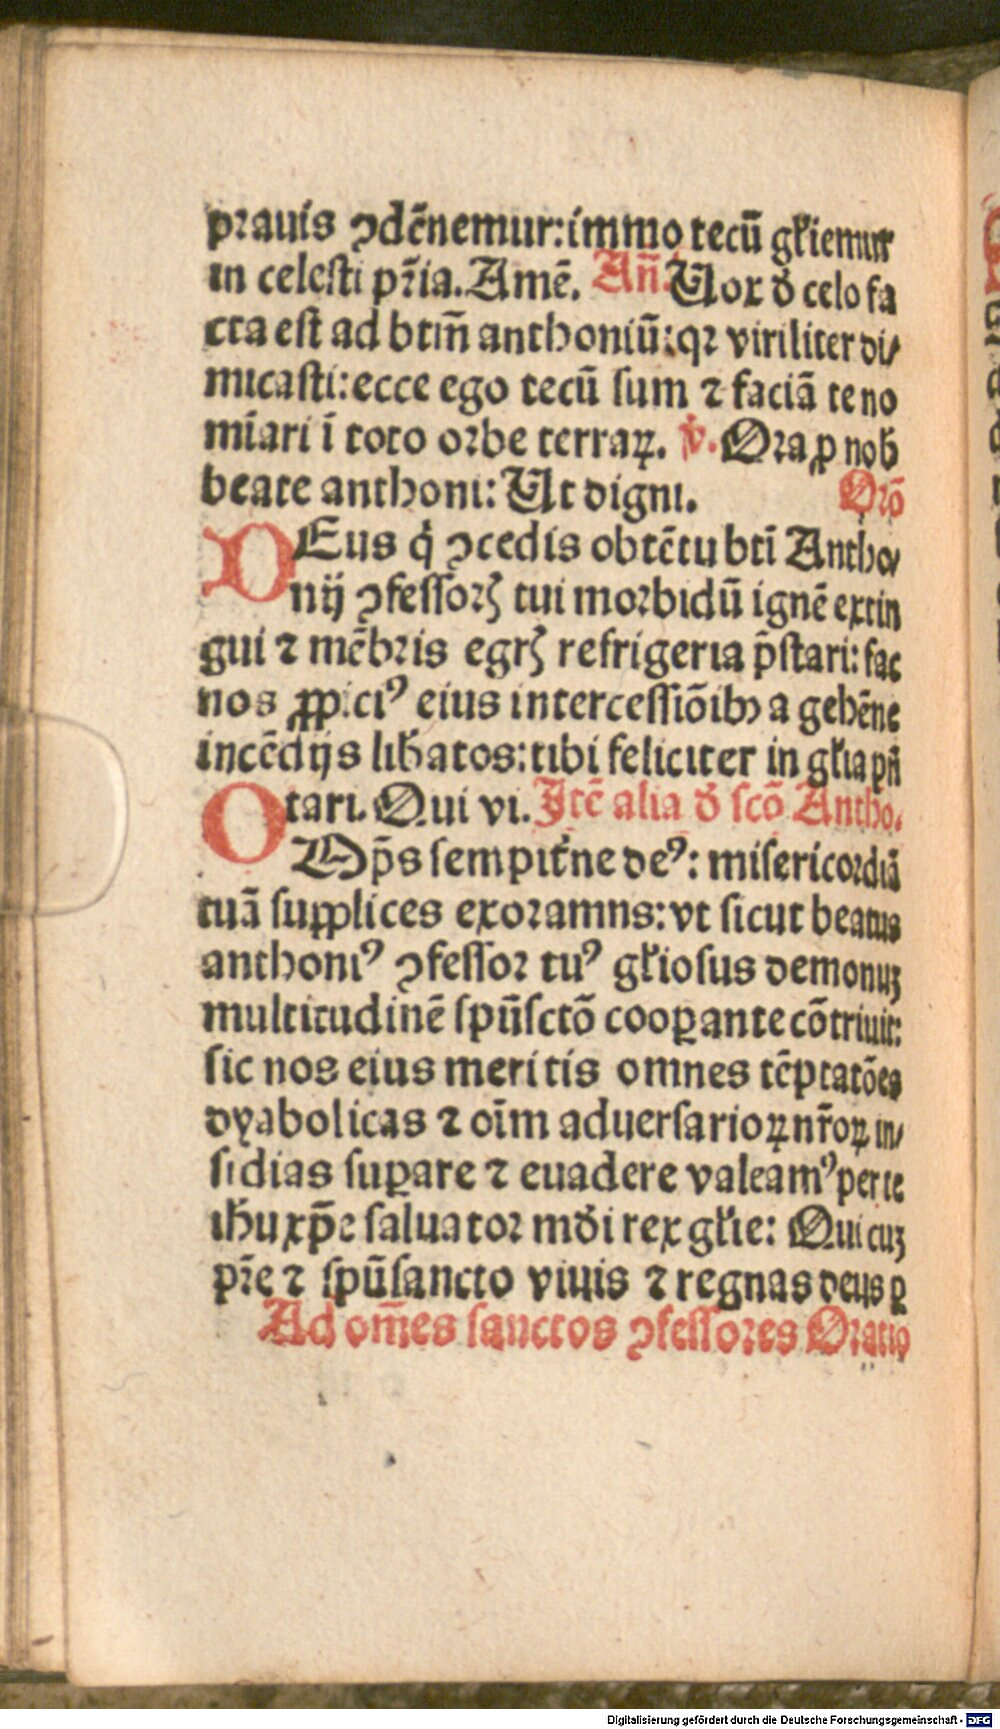 prauis ꝯdēnemur: immo tecū gl̄iemur
in celesti pr̄ia. Amē. Añ. Uox ď celo fa
cta est ad btm̄ anthoniū: qꝛ viriliter di/
micasti: ecce ego tecū sum ⁊ faciā te no
mīari ī toto orbe terraꝝ. ℣. Ora ꝓ nob̄
beate anthoni: Ut digni. Orō
DEus q̇ ꝯcedis obtētu bti̅ Antho/
nij ꝯfessorꝫ tui morbidū ignē extin
gui ⁊ mēbris egrꝫ refrigeria p̄stari: fac
nos ꝓpiciꝰ eius intercessiōibꝫ a gehēne
incēdijs lib̄atos: tibi feliciter in gl̄ia p̄n̄
tari. Qui vi. Itē alia ď scō Antho.
OOp̄s sempit̄ne deꝰ: misericordiā
tuā supplices exoramns: vt sicut beatus
anthoniꝰ ꝯfessor tuꝰ gl̄iosus demonuꝫ
multitudinē spūsctō cooꝑante cōtriuit:
sic nos eius meritis omnes tēptatōes
dyabolicas ⁊ oīm aduersarioꝝ nr̄oꝝ in/
sidias suꝑare ⁊ euadere valeamꝰ per te
ih̄u xp̄e saluator mďi rex gl̄ie: Qui cuꝫ
pr̄e ⁊ spūsancto viuis ⁊ regnas deus ꝑ
Ad om̄es sanctos ꝯfessores Oratio
Digitalisierung gefördert durch die Deutsche Forschungsgemeinschaft - DFG